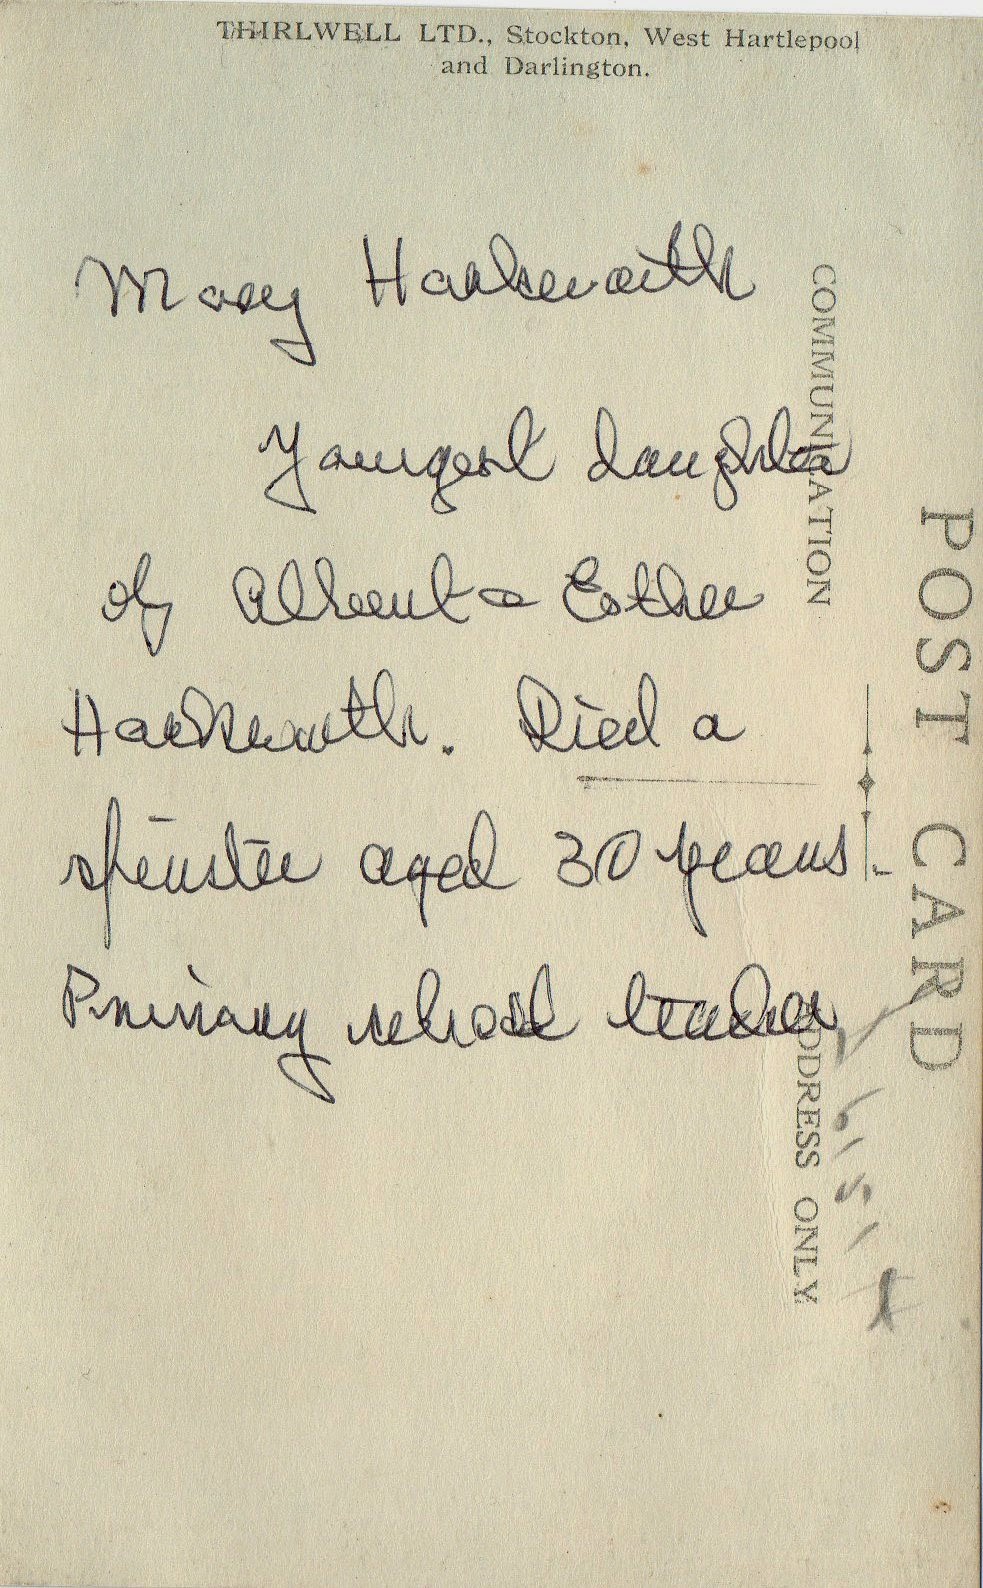 THIRLWELL LTD., Stockton, West Hartlepool
and Darlington.
Mary Hawksworth
Youngest daughter
of Albert & Esther
Hawksworth. Died a
spinster aged 30 years.
Primary school teacher
COMMUNICATION
ADDRESS ONLY
POST CARD